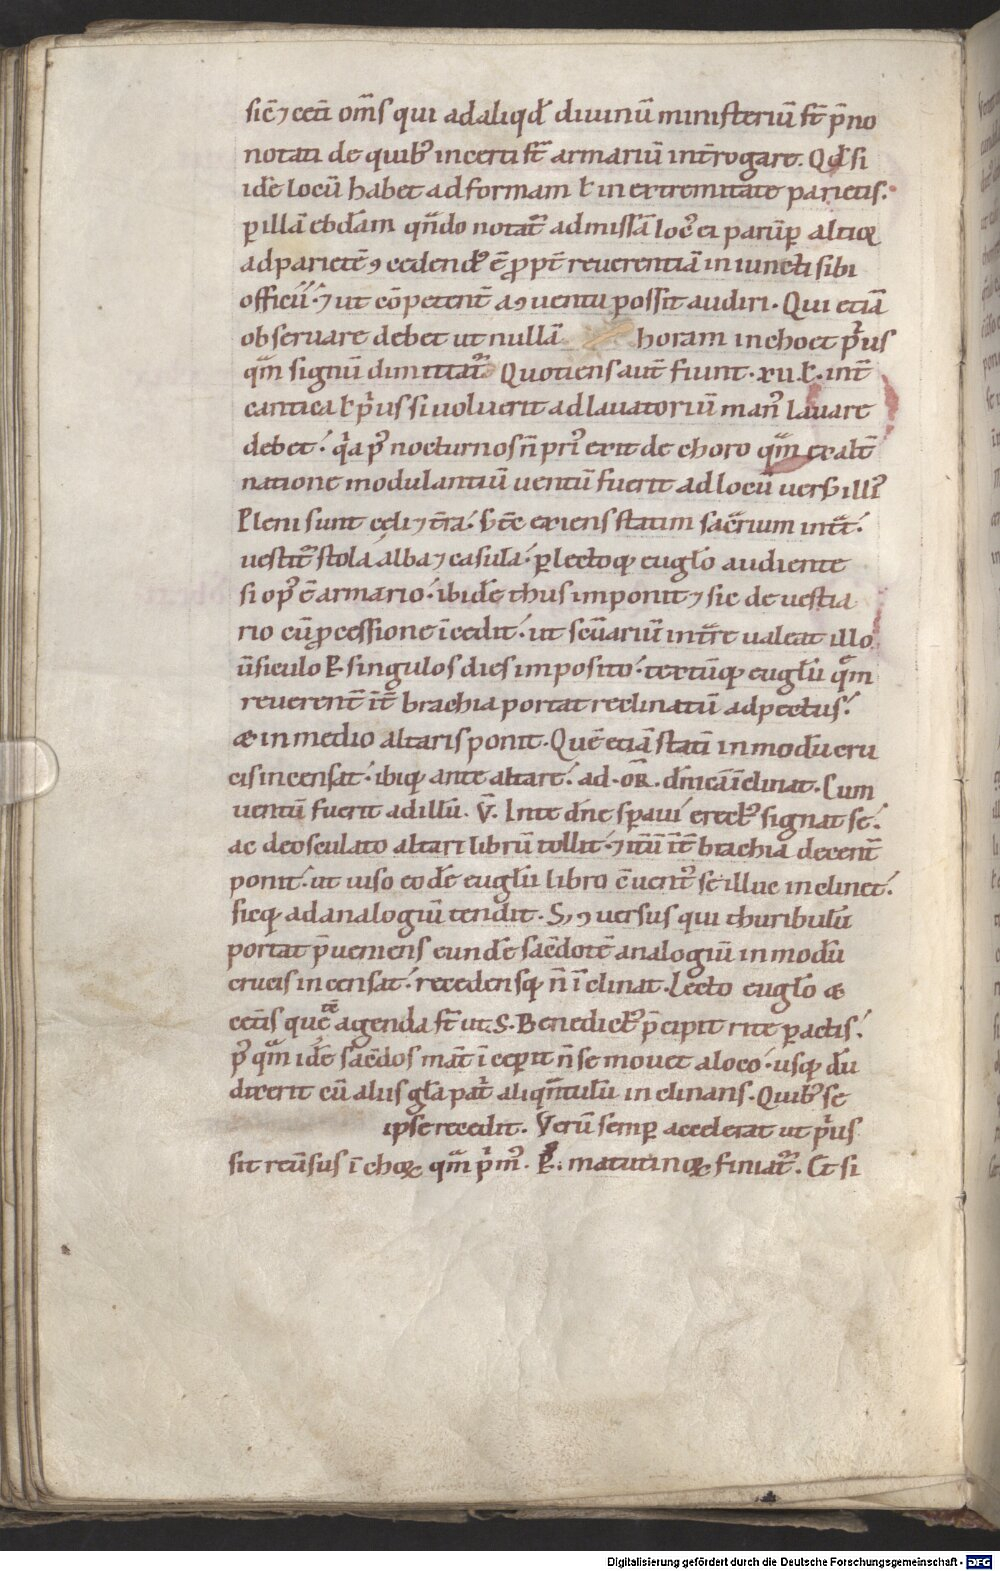 sic̄ ⁊ cet̄i om̄s qui ad aliqd̄ diuinū ministeriū st̄ p̄no
notati de quib; incerti st̄ armariū int̄rogare. Qđ si
idē locū habet ad formam ł in extremitate parietis.
p illā ebdām qn̄do notat̄ ad missā loc̄ ei parūp altiꝰ
ad parietē ꝯcedendꝰ ē ꝓpt̄ reuerentiā iniuncti sibi
officii. ⁊ ut cōpetent̄ aꝯuentu possit audiri. Qui etiā
obseruare debet ut nullā horam inchoet p̄us
qm̄ signū dimittat̄. Quotiens aut̄ fiunt .xii. ł. int̄
cantica ł p̄us si uoluerit ad lauatoriū man̄ lauare
debet. q̄a p̄ nocturnos n̄ pri᾽ exit de choro qm̄ ex alt̄
natione modulantiū uentū fuerit ad locū uers̄ illi᾽
Pleni sunt celi ⁊ t̄ra. Vn̄ exiens statim sac̄rium int̄t.
uestit᾽ stola alba ⁊ casula. plectoq; eugl̄o audiente
si op᾽ ē armario. ibidē thus imponit ⁊ sic de uestia
rio cū ꝓcessione īcedit. ut sc̄uariū int̄re ualeat illo
ūsiculo P singulos dies imposito. textūq; eugl̄ii qm̄
reuerent̄ īt̄ brachia portat reclinatū ad pectus.
æ in medio altaris ponit. Quē etiā stati in modū cru
cis incensat. ibiq; ante altare. ad .OR. dn̄icā īclinat. Cum
uentū fuerit ad illū. V̄. In te dn̄e spaui erect᾽ signat se.
ac deosculato altari librū tollit. ⁊ itū īt̄ brachia decent̄
ponit. ut uiso eodē eugl̄ii libro ꝯuent᾽ se illuc inclinet.
sicq; ad analogiū tendit. S; ꝯuersus qui thuribulū
portat p̄ueniens eundē sac̄dotē analogiū in modū
crucis incensat. recedensq; n̄ īclinat. Lecto eugl̄o æ
cet̄is que agenda st̄ ut .S. Benedict᾽ p̄cipit rite pactis.
p̄ qm̄ idē sac̄dos mat̄ īcepit n̄ se mouet a loco. usq; dū
dicerit cū aliis gl̄a pat̄ aliqn̄tulū inclinans. Quib; se
ipse recedit. Verū semp accelerat ut p̄us
sit reūsus ī choꝝ qm̄ p̄m᾽. P̄. matutinoꝝ finiat̄. Et si
Digitalisierung gefördert durch die Deutsche Forschungsgemeinschaft - DFG